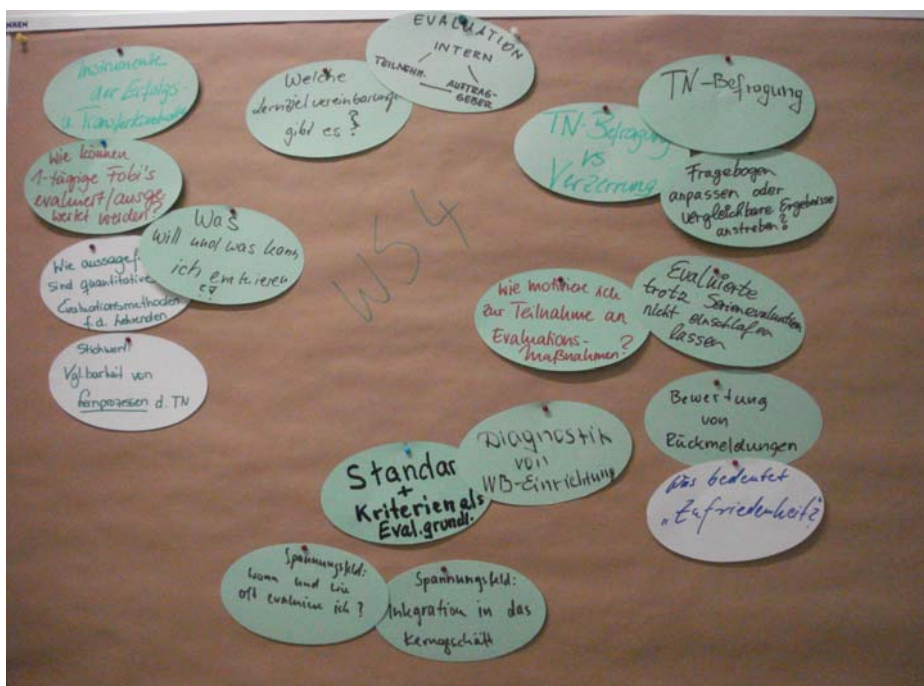 Instrumente
der Erfolgs-
u. Transferkontrolle
Wie können
1-tägige Fobi's
evaluiert/ausge-
wertet werden?
Was
will und was kann
ich evaluieren
?
Wie
sind quantitative
Evaluationsmethoden
f. d. Lehrenden
Stichwort:
Vgl.barkeit von
Lernprozessen d. TN
Welche
Lernzielvereinbarungen
gibt es?
EVALUATION
INTERN
TEILNEHM.
AUFTRAG-
GEBER
WS4
TN-Befragung
TN-Befragung
vs
Verzerrung
Fragebogen
anpassen oder
vergleichbare Ergebnisse
anstreben?
Wie motiviere ich
zur Teilnahme an
Evaluations-
maßnahmen?
Evaluierte
trotz Serienevaluation
nicht einschlafen
lassen
Bewertung
von
Rückmeldungen
Was bedeutet
„Zufriedenheit"?
Diagnostik
von
WB-Einrichtung
Standar
+
Kriterien als
Eval.grundl.
Spannungsfeld:
wann und wie
oft evaluiere ich?
Spannungsfeld:
Integration in das
Kerngeschäft